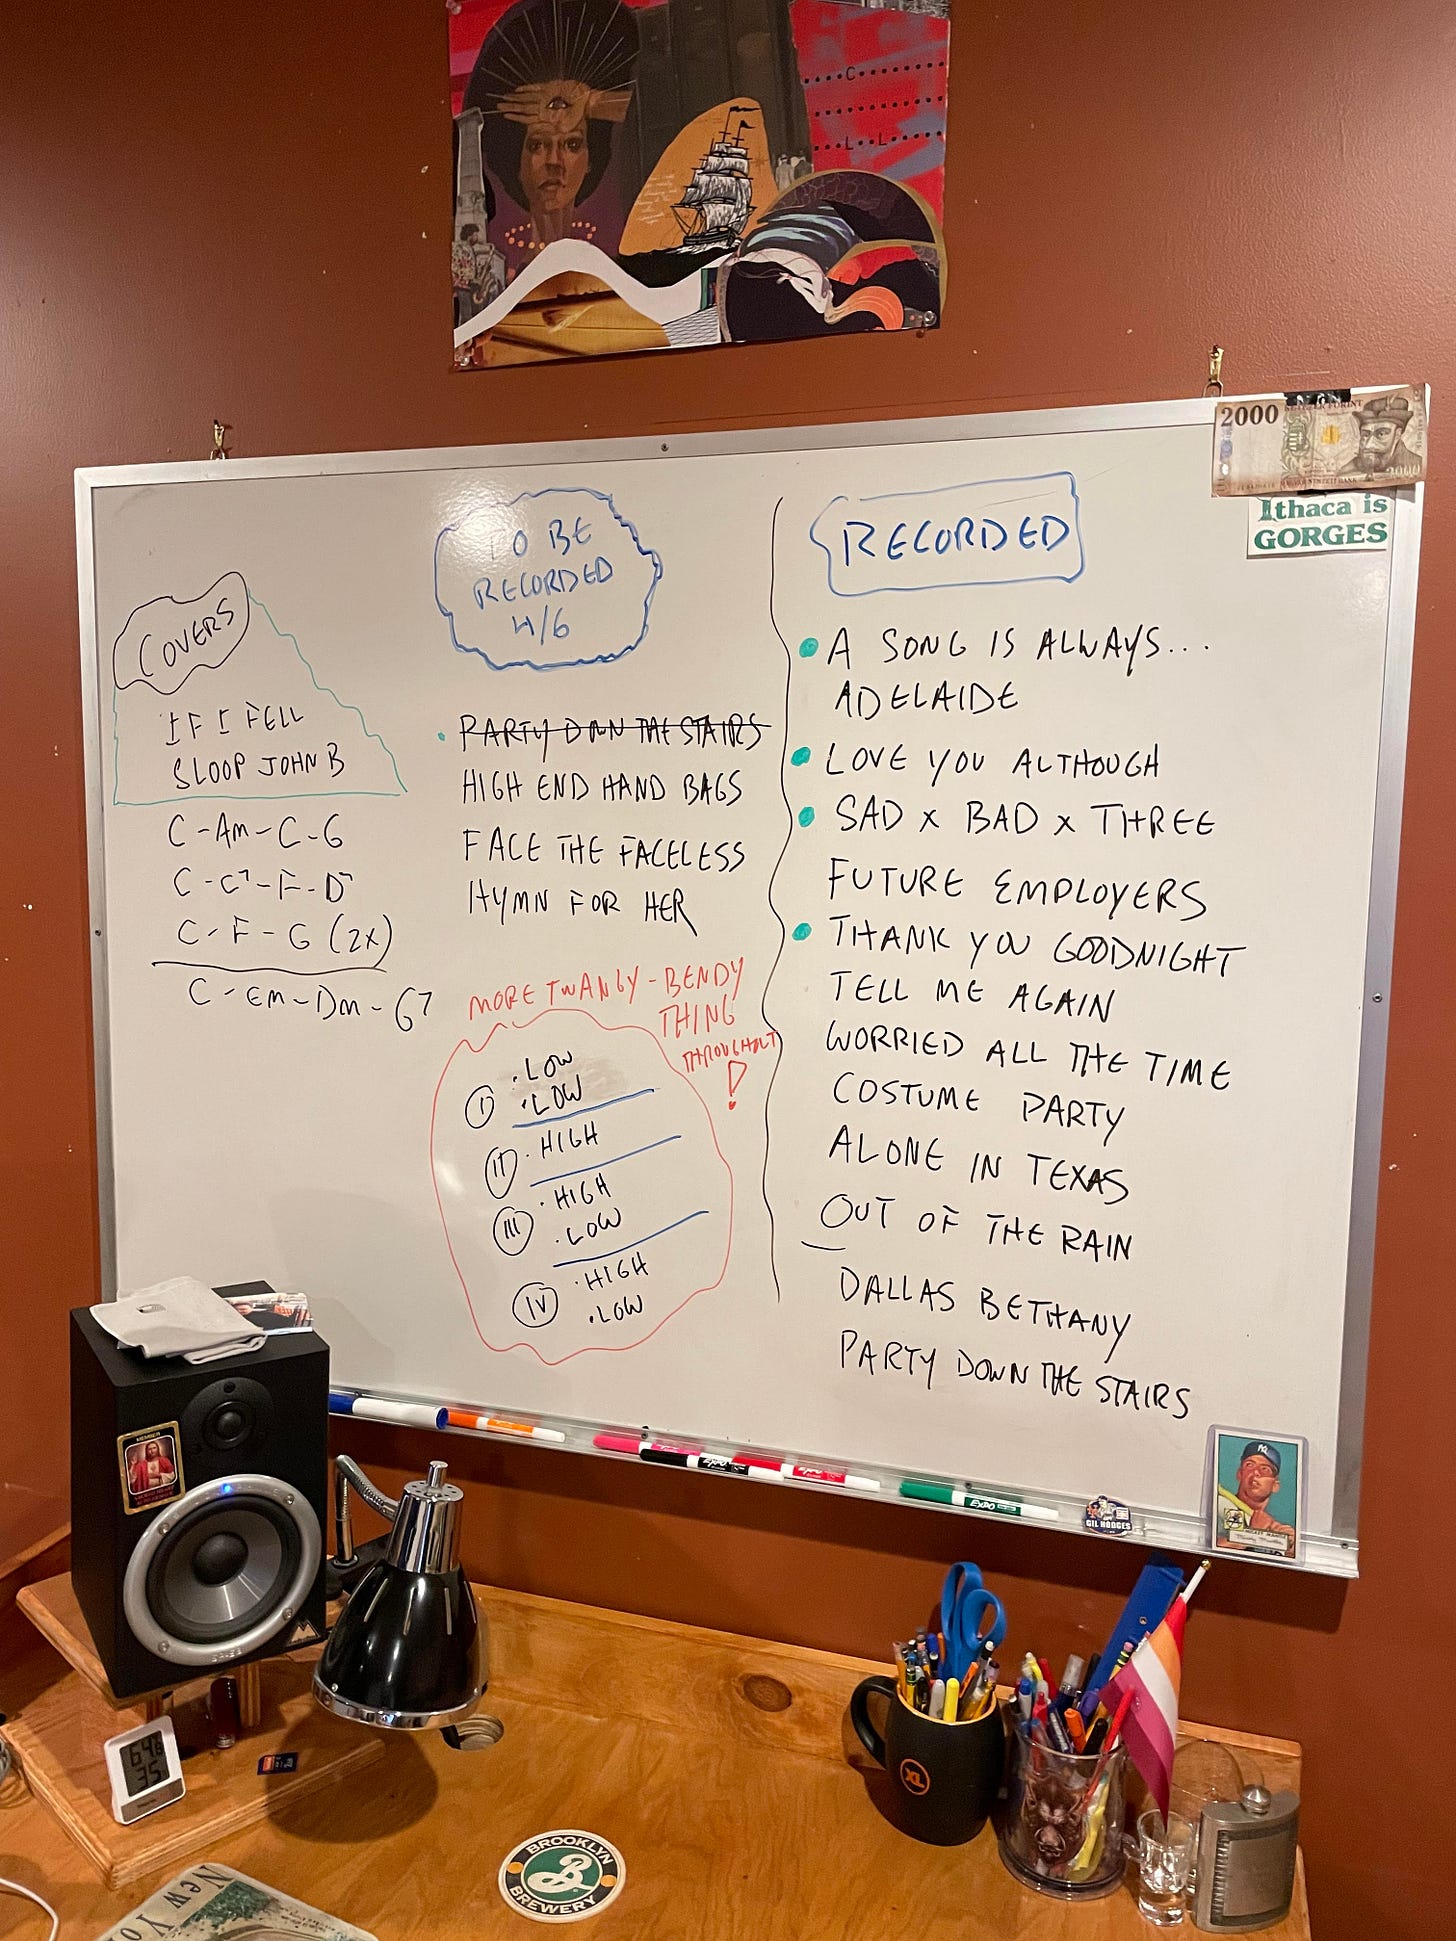 C
L L
2000
Ithaca is
GORGES
COVERS
IF I FELL
SLOOP JOHN B
C-Am-C-G
C-C7-F-D7
C-F-G (2x)
C-Em-Dm-G7
TO BE
RECORDED
4/6
PARTY DOWN THE STAIRS
HIGH END HAND BAGS
FACE THE FACELESS
HYMN FOR HER
MORE TWANGY-BENDY
THING
THROUGHOUT
!
I • LOW
• LOW
II • HIGH
III • HIGH
• LOW
IV • HIGH
• LOW
RECORDED
• A SONG IS ALWAYS...
ADELAIDE
• LOVE YOU ALTHOUGH
• SAD x BAD x THREE
FUTURE EMPLOYERS
• THANK YOU GOODNIGHT
TELL ME AGAIN
WORRIED ALL THE TIME
COSTUME PARTY
ALONE IN TEXAS
OUT OF THE RAIN
DALLAS BETHANY
PARTY DOWN THE STAIRS
EXPO
EXPO
EXPO
GIL HODGES
NY
MICKEY MANTLE
MEMBER
64.8
35
XL
BROOKLYN
B
BREWERY
New Yo